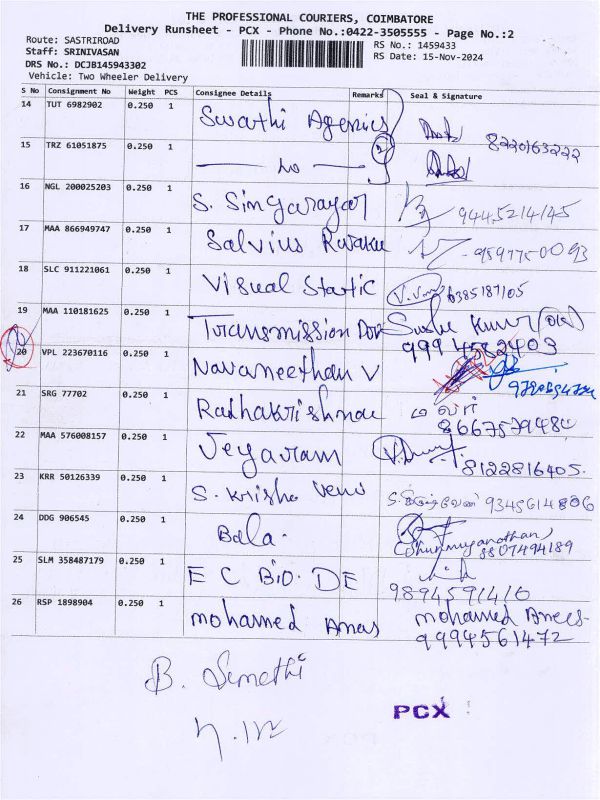 THE PROFESSIONAL COURIERS, COIMBATORE
Delivery Runsheet - PCX - Phone No.:0422-3505555 - Page No.:2
Route: SASTRIROAD
RS No.: 1459433
Staff: SRINIVASAN
RS Date: 15-Nov-2024
DRS No.: DCJB145943302
Vehicle: Two Wheeler Delivery
S No Consignment No Weight PCS Consignee Details Remarks Seal & Signature
14 TUT 6982902 0.250 1 Swathi Agencies 8220163222
15 TRZ 61051875 0.250 1 2
16 NGL 200025203 0.250 1 S. Singarayar 9445214145
17 MAA 866949747 0.250 1 Salvius
18 SLC 911221061 0.250 1 Visual Static 6385187105
19 MAA 110181625 0.250 1 Transmission
20 VPL 223670116 0.250 1 Navaneethan V
21 SRG 77702 0.250 1 Radhakrishnan மலர்
22 MAA 576008157 0.250 1 Jeyaram 8122816405.
23 KRR 50126339 0.250 1 S. Krishna Veni 9345614806
24 DDG 906545 0.250 1 Bala. 8807494189
25 SLM 358487179 0.250 1 E C BIO. DE 9894591416
26 RSP 1898904 0.250 1 mohamed Anas mohamed Anees.
9994561472
B. Sumathi
PCX